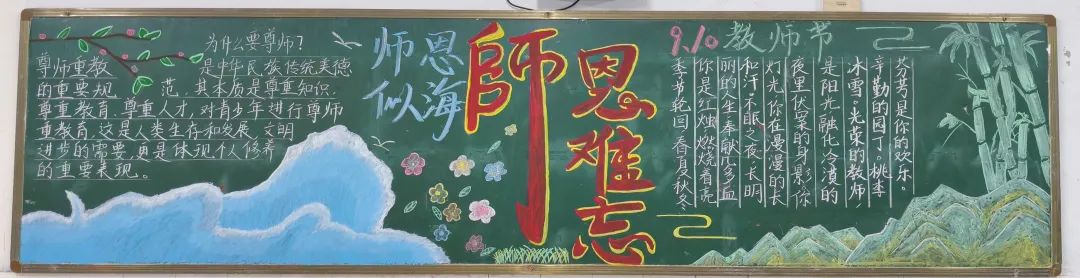 为什么要尊师?
尊师重教 是中华民族传统美德
的重要规 范,其本质是尊重知识.
尊重教育.尊重人才,对青少年进行尊师
重教育,这是人类生存和发展,文明
进步的需要更是体现个人修养
的重要表现。
师恩
似海
師
恩难忘
9.10 教师节
季节轮回春夏秋冬
你是红烛燃烧着亮
丽的人生奉献几多血
和汗不眠之夜长明
灯光你在漫漫的长
夜里伏案的身影你
是阳光融化冷漠的
冰雪.光荣的教师
辛勤的园丁.桃李
芬芳是你的欢乐。